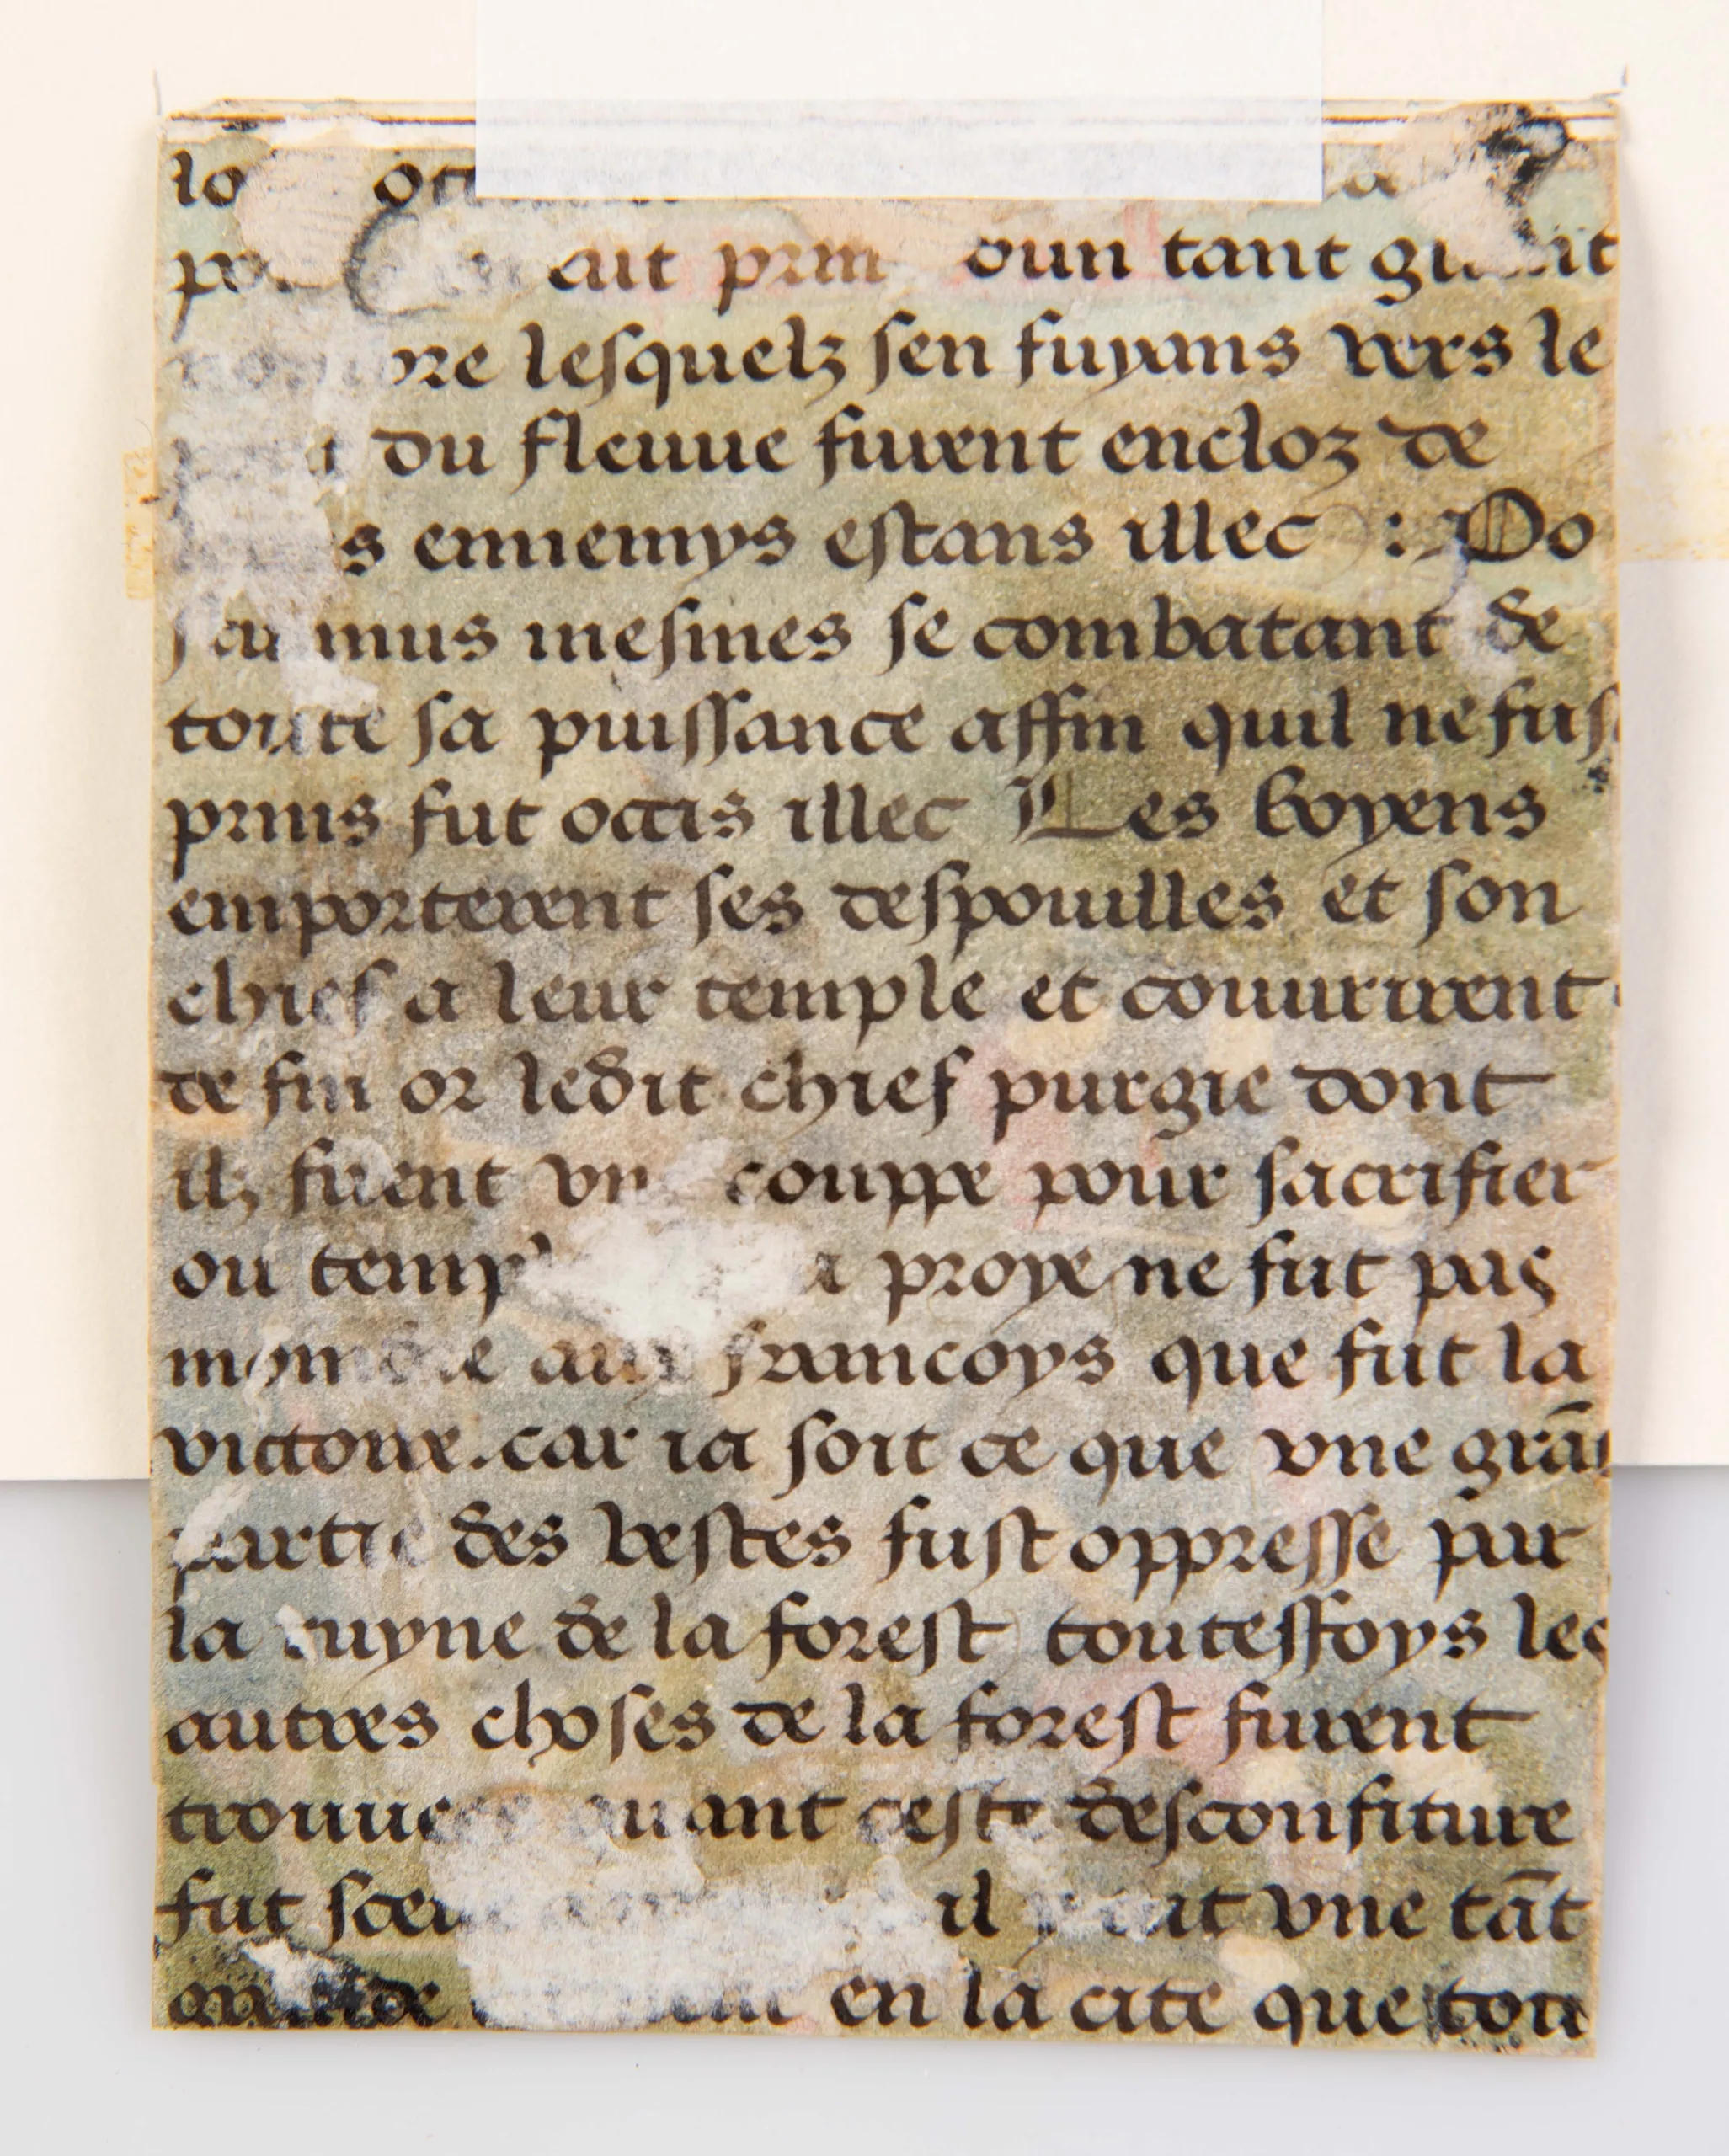 tant
lesquelz sen fuyans vers le
du fleuue furent encloz de
ennemys estans illec : Po
mesmes se combatant de
toute sa puissance affin quil ne fust
prins fut occis illec Les boyens
emporterent ses despouilles et son
chief a leur temple et couurirent
de fin or ledit chief purgie dont
ilz firent vn couppe pour sacrifier
ou proye ne fut pas
aux francoys que fut la
victoire . car ia soit ce que vne grãd
partie des bestes fust oppresse par
la ruyne de la forest toutesfoys les
autres choses de la forest furent
trouuees quant ceste desconfiture
fut il vne tãt
en la cite que tou